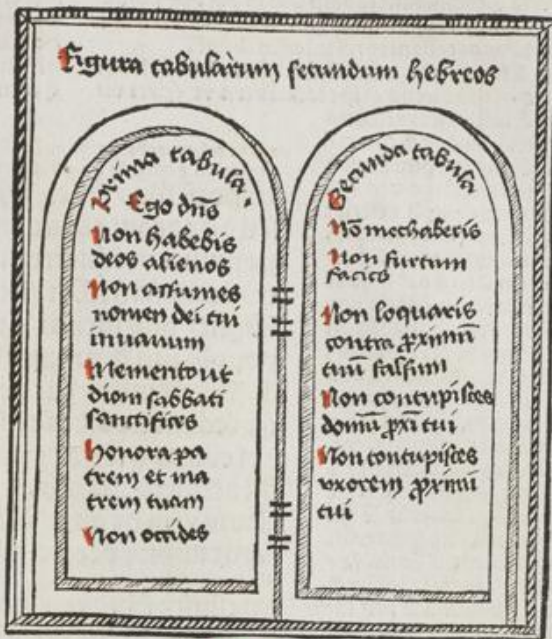 Figura tabularum secundum hebreos
Prima tabula.
Ego dn̄s
Non habebis
deos alienos
Non assumes
nomen dei tui
in vanum
Memento ut
diem sabbati
sanctifices
Honora pa
trem et ma
trem tuam
Non occides
Secunda tabula
Nō mechaberis
Non furtum
facies
Non loquaris
contra ꝓximū
tuū falsum
Non concupisces
domū ꝓxi tui
Non concupisces
uxorem ꝓximi
tui